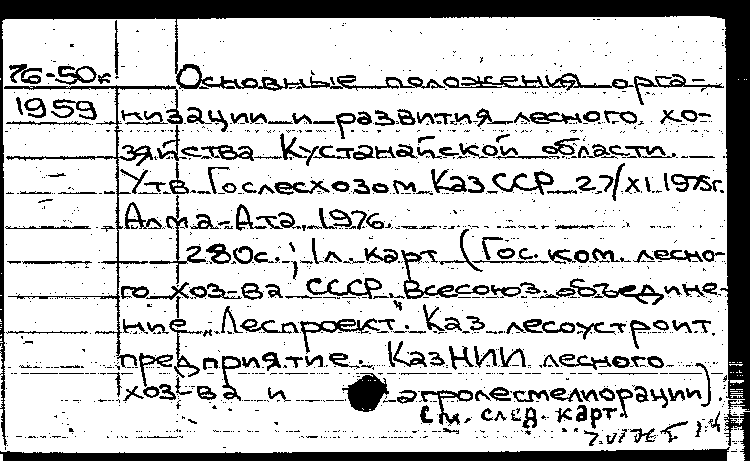 76-50к Основные положения орга-
1959 низации и развития лесного хо-
зяйства Кустанайской области.
Утв. Гослесхозом КазССР 27/XI 1975г.
Алма-Ата, 1976.
280с.; 1л. карт (Гос. ком. лесно-
го хоз-ва СССР. Всесоюз. объедине-
ние „Леспроект". Каз лесоустроит.
предприятие. КазНИИ лесного
хоз-ва и агролесмелиорации).
См. след. карт.